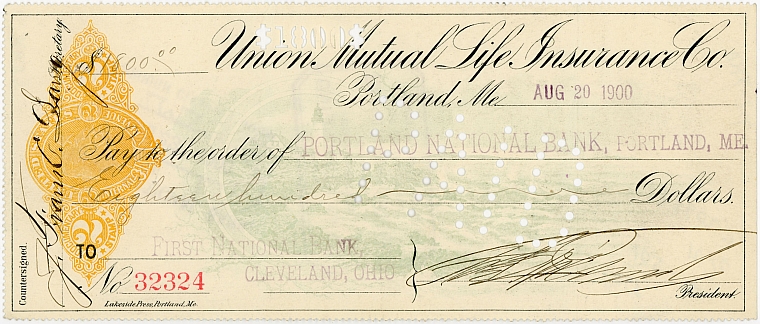 Union Mutual Life Insurance Co.
$1800.00
Portland, Me. AUG 20 1900
Pay to the order of PORTLAND NATIONAL BANK, PORTLAND, ME.
Eighteen hundred Dollars.
TO FIRST NATIONAL BANK,
CLEVELAND, OHIO
No 32324
President.
Lakeside Press, Portland, Me.
Countersigned.
Secretary.
2 2